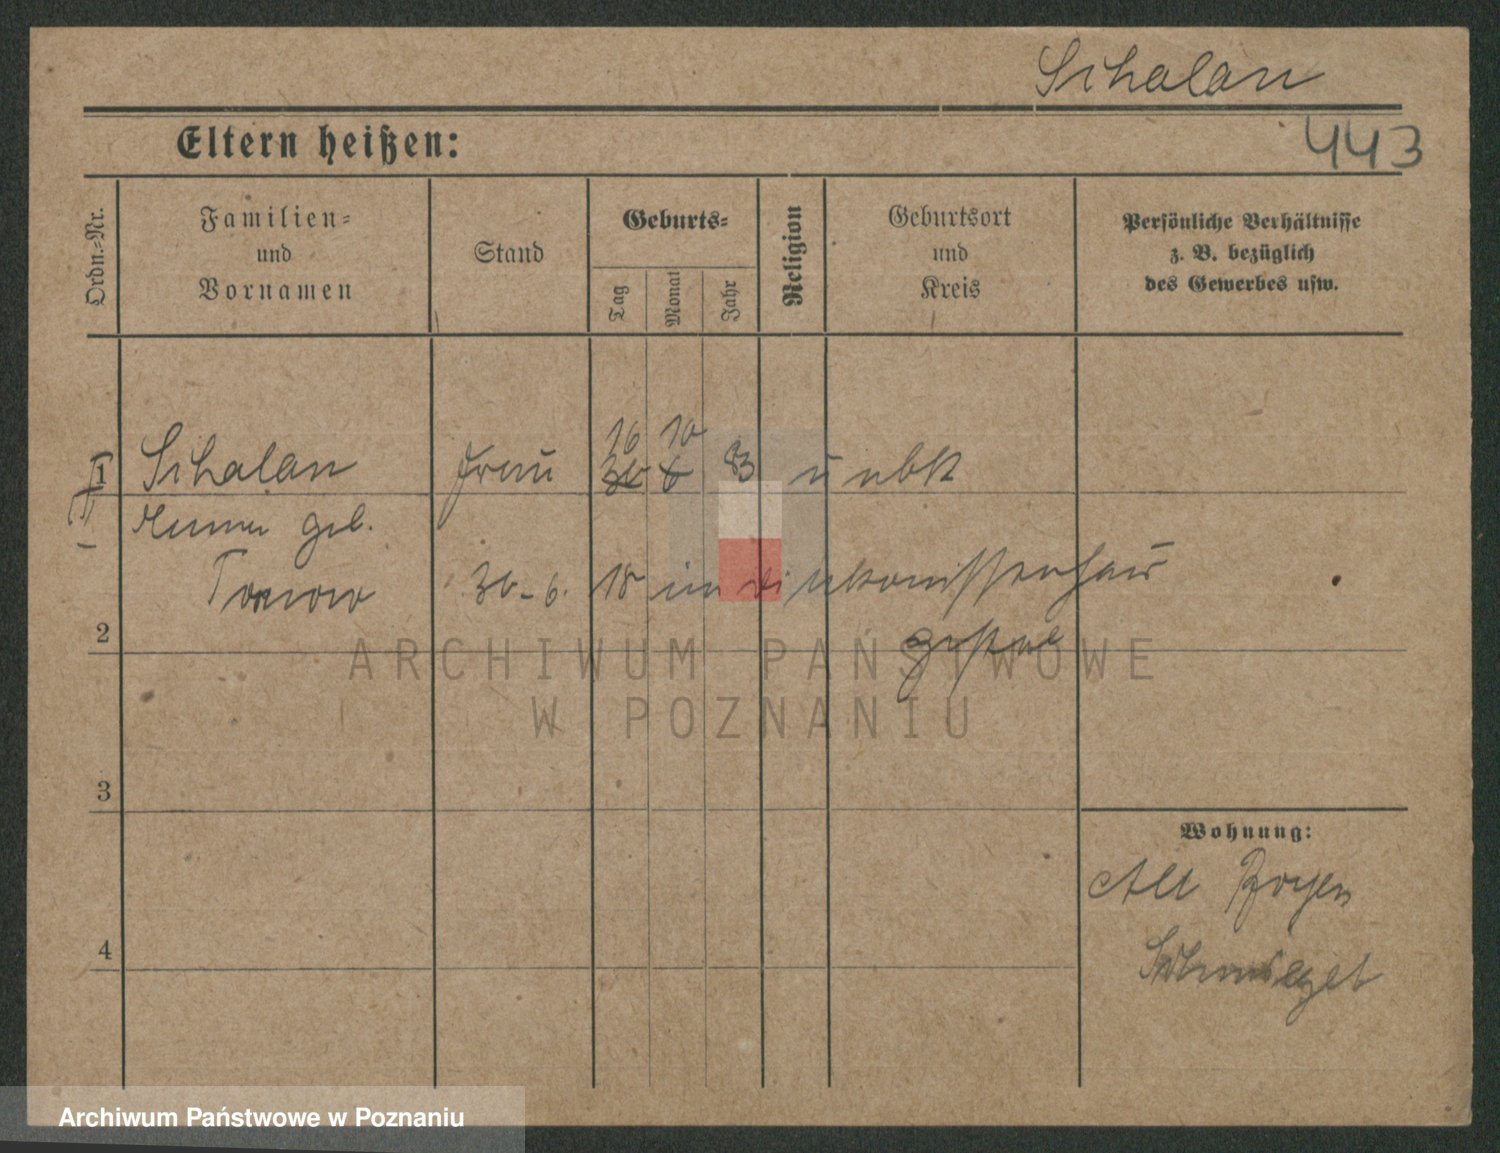 Schalan
443
Eltern heißen:
Ordn.-Nr.
Familien-
und
Vornamen
Stand
Geburts-
Tag
Monat
Jahr
Religion
Geburtsort
und
Kreis
Persönliche Verhältnisse
z. B. bezüglich
des Gewerbes usw.
16 10
1 Schalan Frau 30 6 83 unbk
geb.
30-6. 18 im Diakonissenhaus
2
gest.
ARCHIWUM PAŃSTWOWE
W POZNANIU
3
Wohnung:
Alt Boyen
4
Schmiegel
Archiwum Państwowe w Poznaniu